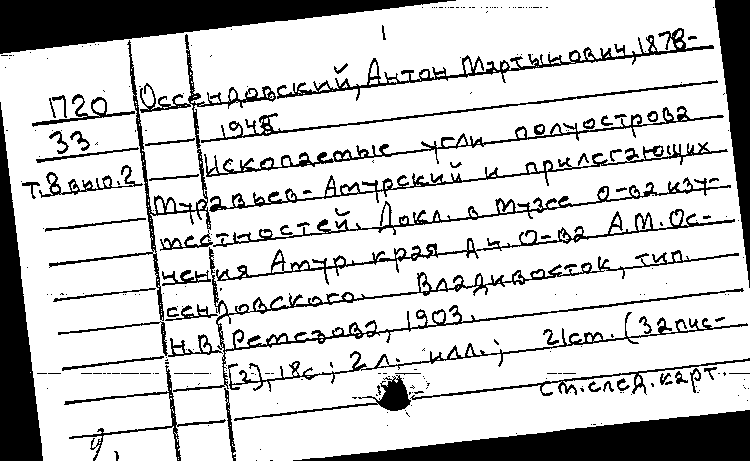 1
П20 Оссендовский, Антон Мартынович, 1878-
33 1945.
т.8 вып.2 Ископаемые угли полуострова
Муравьев-Амурский и прилегающих
местностей. Докл. в Музее о-ва изу-
чения Амур. края д.ч. О-ва А.М.Ос-
сендовского. Владивосток, тип.
Н.В. Ремезова, 1903.
[2], 18с.; 2 л. илл.; 21см. (Запис-
см.след.карт.